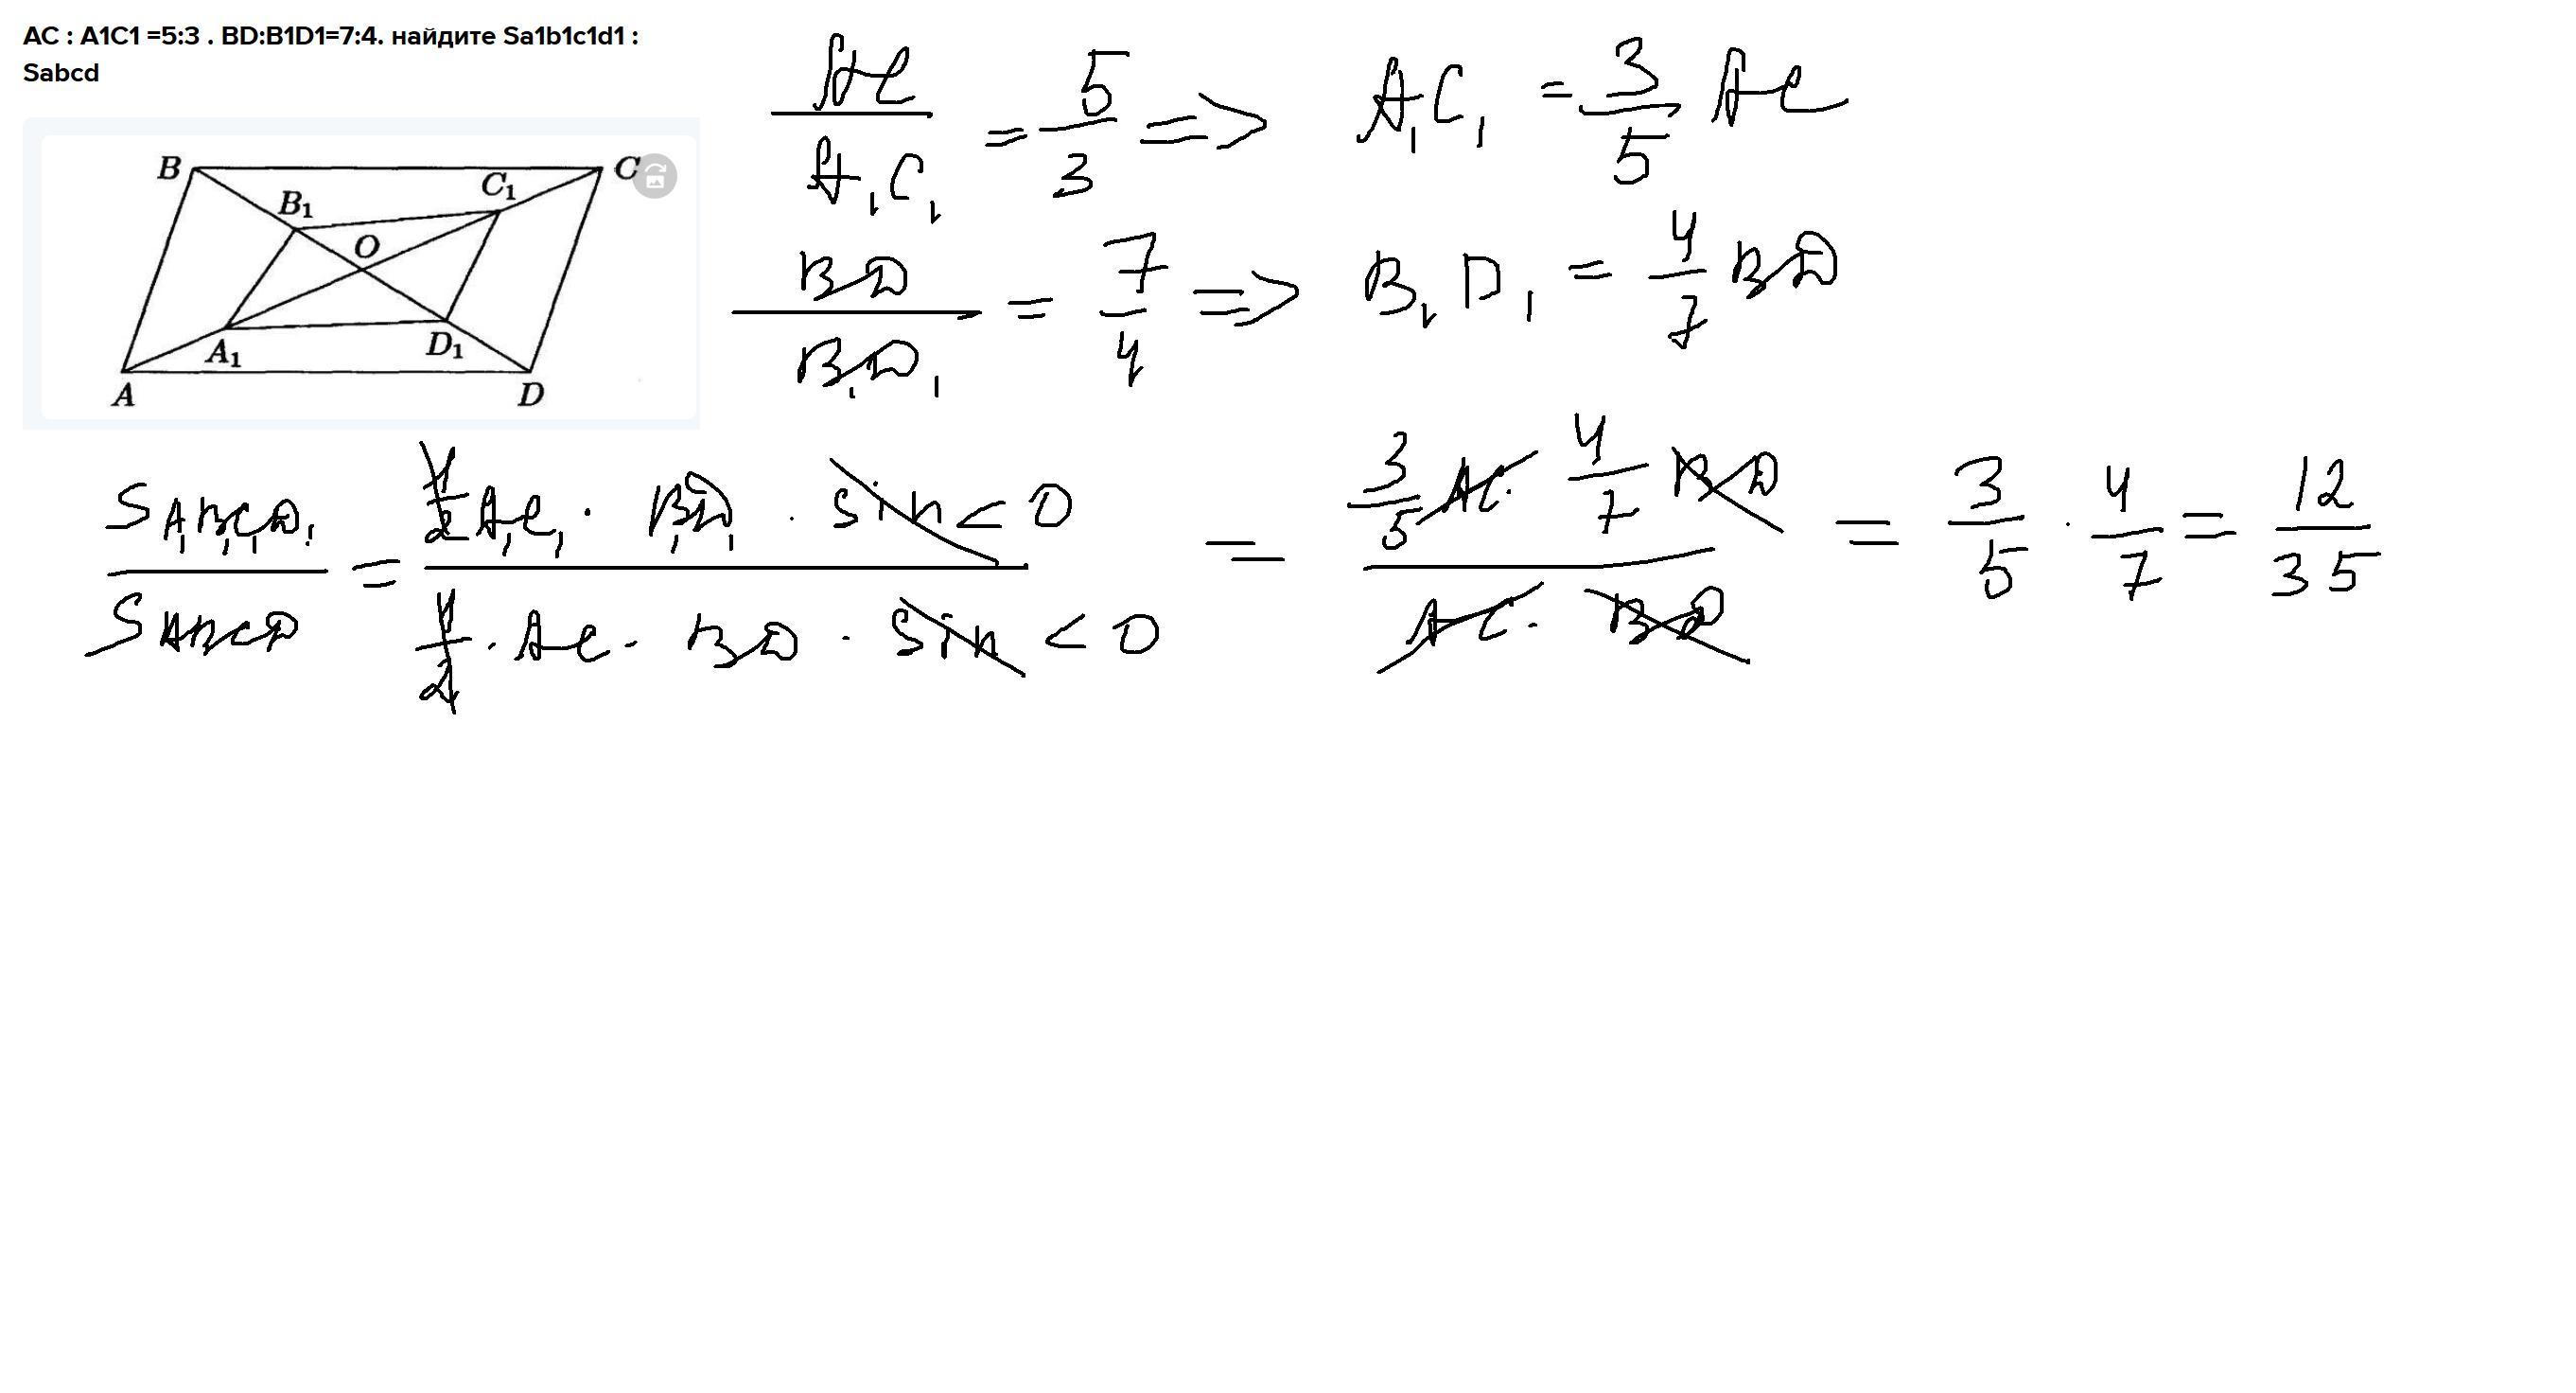 AC : A1C1 =5:3 . BD:B1D1=7:4. найдите Sa1b1c1d1 :
Sabcd
B
C
B₁
C₁
O
A₁
D₁
A
D
AC/A₁C₁ = 5/3 => A₁C₁ = 3/5 AC
BD/B₁D₁ = 7/4 => B₁D₁ = 4/7 BD
S A₁B₁C₁D₁ / S ABCD = (1/2 A₁C₁ · B₁D₁ · sin < O) / (1/2 · AC · BD · sin < O) = (3/5 AC · 4/7 BD) / (AC · BD) = 3/5 · 4/7 = 12/35